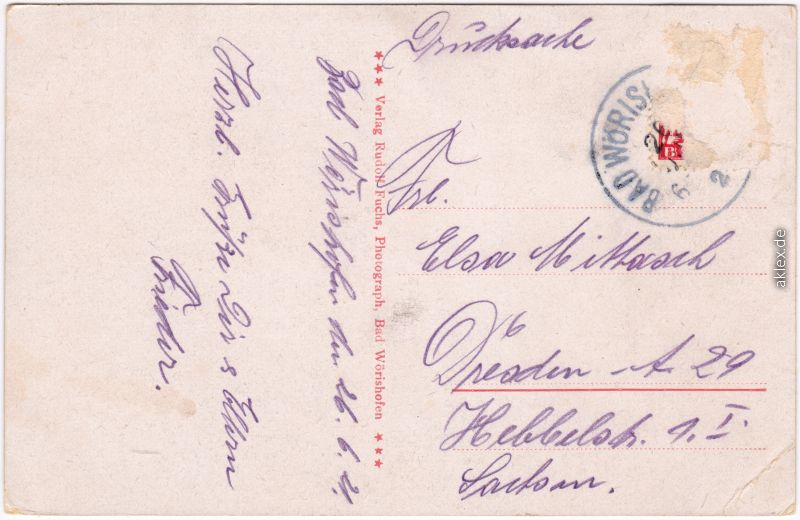 Drucksache
BAD WÖRISH
26
2
Frl.
Elsa Mittasch
Dresden - A 29
Hebbelstr. 1. I.
Sachsen.
*** Verlag Rudolf Fuchs, Photograph, Bad Wörishofen ***
Bad Wörishofen den 26. 6. 21.
Herzl. Grüße Dir & Eltern
Frieder.
aklex.de